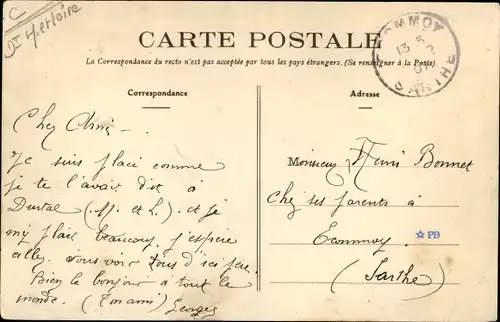 C
Mt et Loire
CARTE POSTALE
La Correspondance du recto n'est pas acceptée par tous les pays étrangers. (Se renseigner à la Poste)
Correspondance
Cher Ami –
Je suis placé comme
je te l'avait dit à
Durtal (M. et L.). et je
my plait beaucoup j'espère
aller vous voir tous d'ici peu.
Bien le bonjour à tout le
monde. (Ton ami) Georges
Adresse
Monsieur Henri Bonnet
Chez ses parents à
Ecommoy
(Sarthe)
☆PB
ECOMMOY
13 5
SARTHE